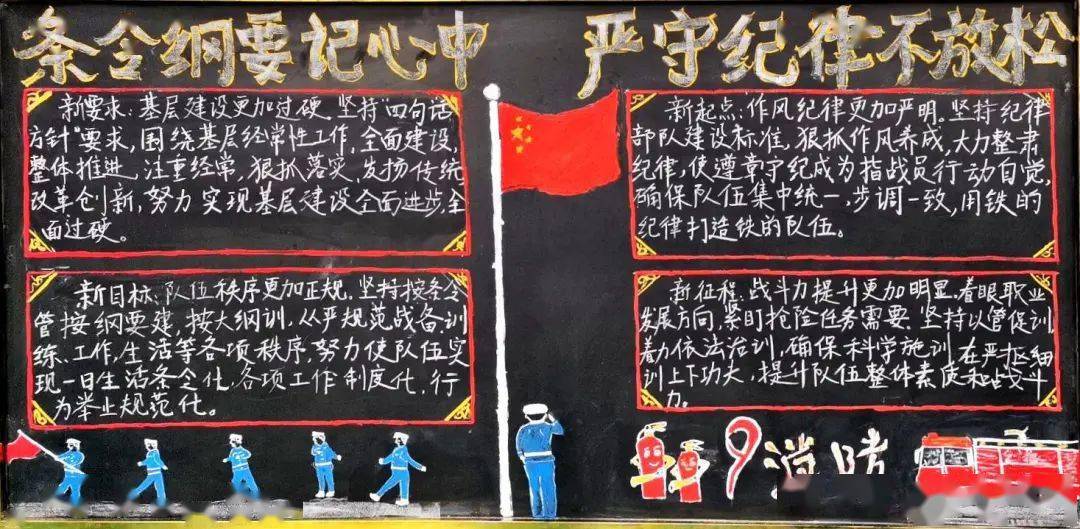 条令纲要记心中 严守纪律不放松
新要求:基层建设更加过硬.坚持"四句话
方针"要求,围绕基层经常性工作,全面建设,
整体推进,注重经常,狠抓落实,发扬传统
改革创新,努力实现基层建设全面进步,全
面过硬。
新目标:队伍秩序更加正规.坚持按条令
管按纲要建,按大纲训,从严规范战备训
练、工作,生活等各项秩序,努力使队伍实
现一日生活条令化,各项工作制度化,行
为举业规范化。
新起点:作风纪律更加严明.坚持纪律
部队建设标准,狠抓作风养成,大力整肃
纪律,使遵章守纪成为指战员行动自觉,
确保队伍集中统一,步调一致,用铁的
纪律打造铁的队伍。
新征程:战斗力提升更加明显.着眼职业
发展方向,紧盯抢险任务需要.坚持以管促训
着力依法治训,确保科学施训,在严抠细
训上下功夫,提升队伍整体素质和战斗
力。
消